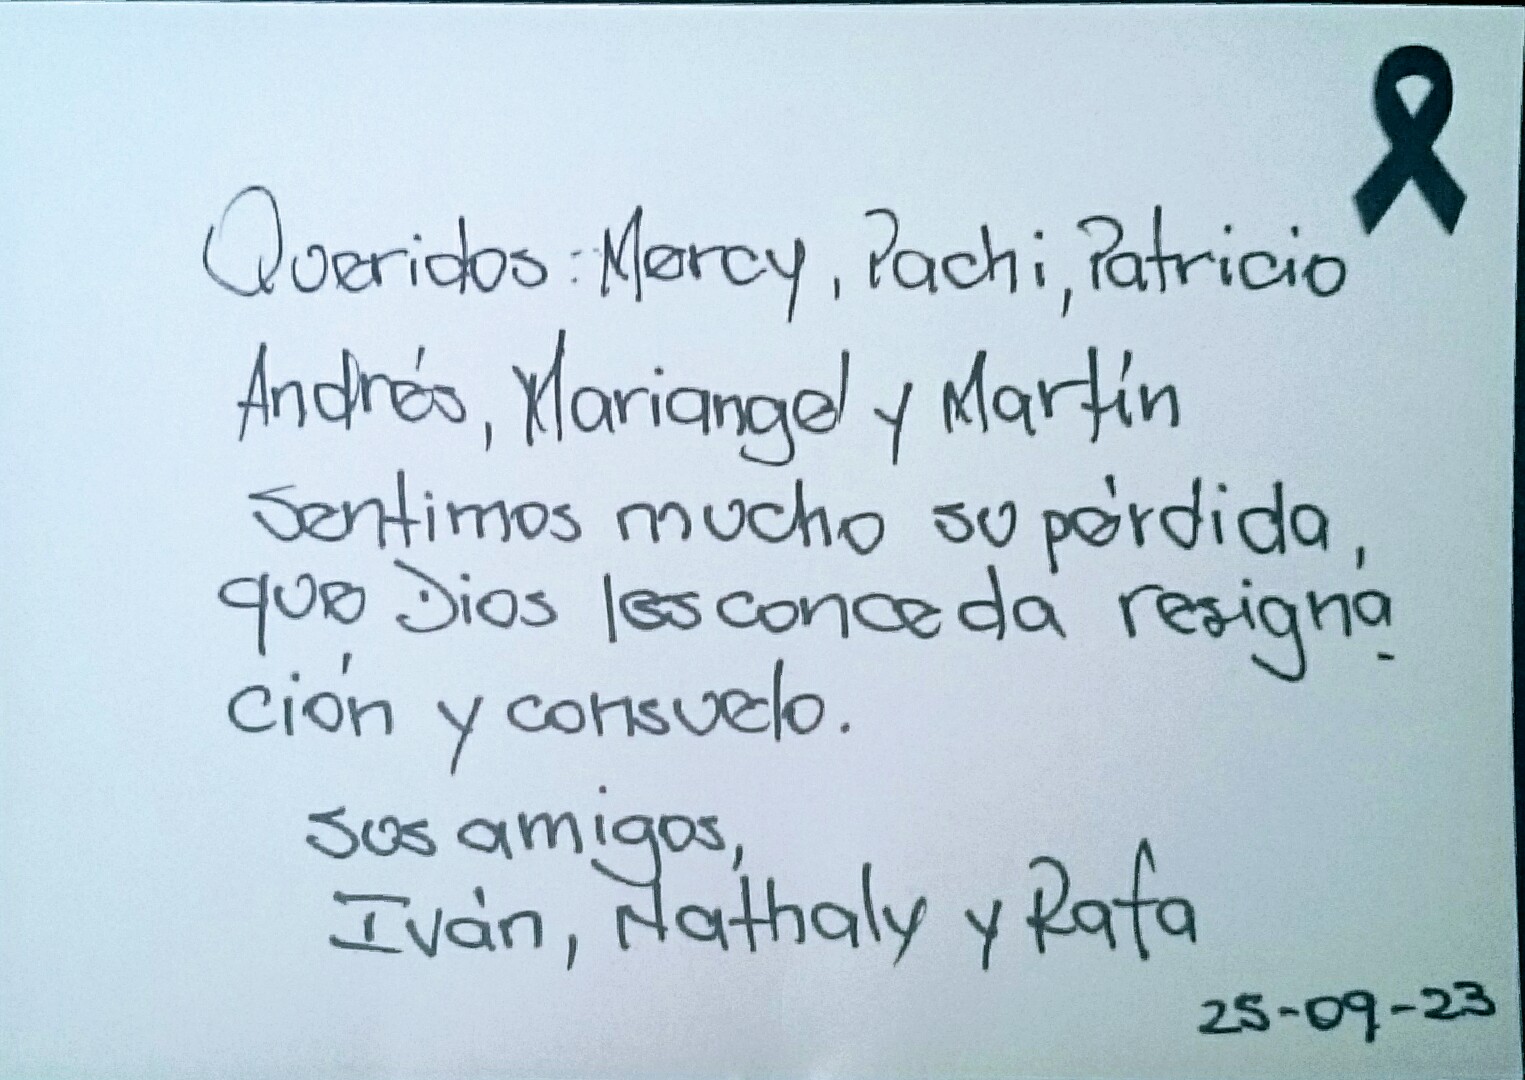 Queridos: Mercy, Pachi, Patricio
Andrés, Mariangel y Martín
sentimos mucho su pérdida,
que Dios les conceda resigna-
ción y consuelo.
sus amigos,
Iván, Nathaly y Rafa
25-09-23